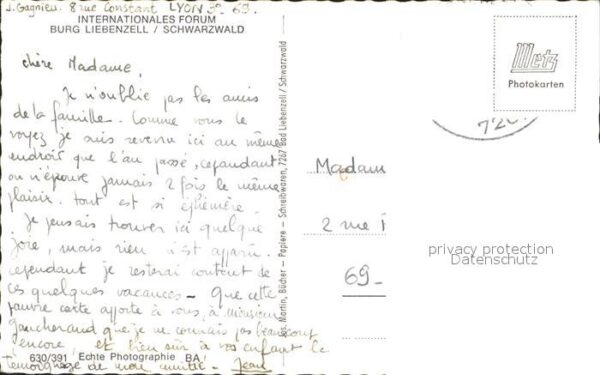 J. Gagnieu. 8 rue Constant LYON 3e 69.
INTERNATIONALES FORUM
BURG LIEBENZELL / SCHWARZWALD
chère Madame,
Je n'oublie pas les amis
de la famille. Comme vous le
voyez je suis revenu ici au même
endroit que l'an passé, cependant
on n'éprouve jamais 2 fois le même
plaisir. tout est si éphémère.
Je pensais trouver ici quelque
joie, mais rien n'est apparu.
cependant je resterai content de
ces quelques vacances - Que cette
pauvre carte apporte à vous, à monsieur
Gaucherand que je ne connais pas beaucoup
encore et bien sûr à vos enfants le
témoignage de mon amitié - Jean
630/391 Echte Photographie BA
Martin, Bücher - Papiere - Schreibwaren, 7267 Bad Liebenzell / Schwarzwald
Metz
Photokarten
Madam
2 rue
69-
privacy protection
Datenschutz